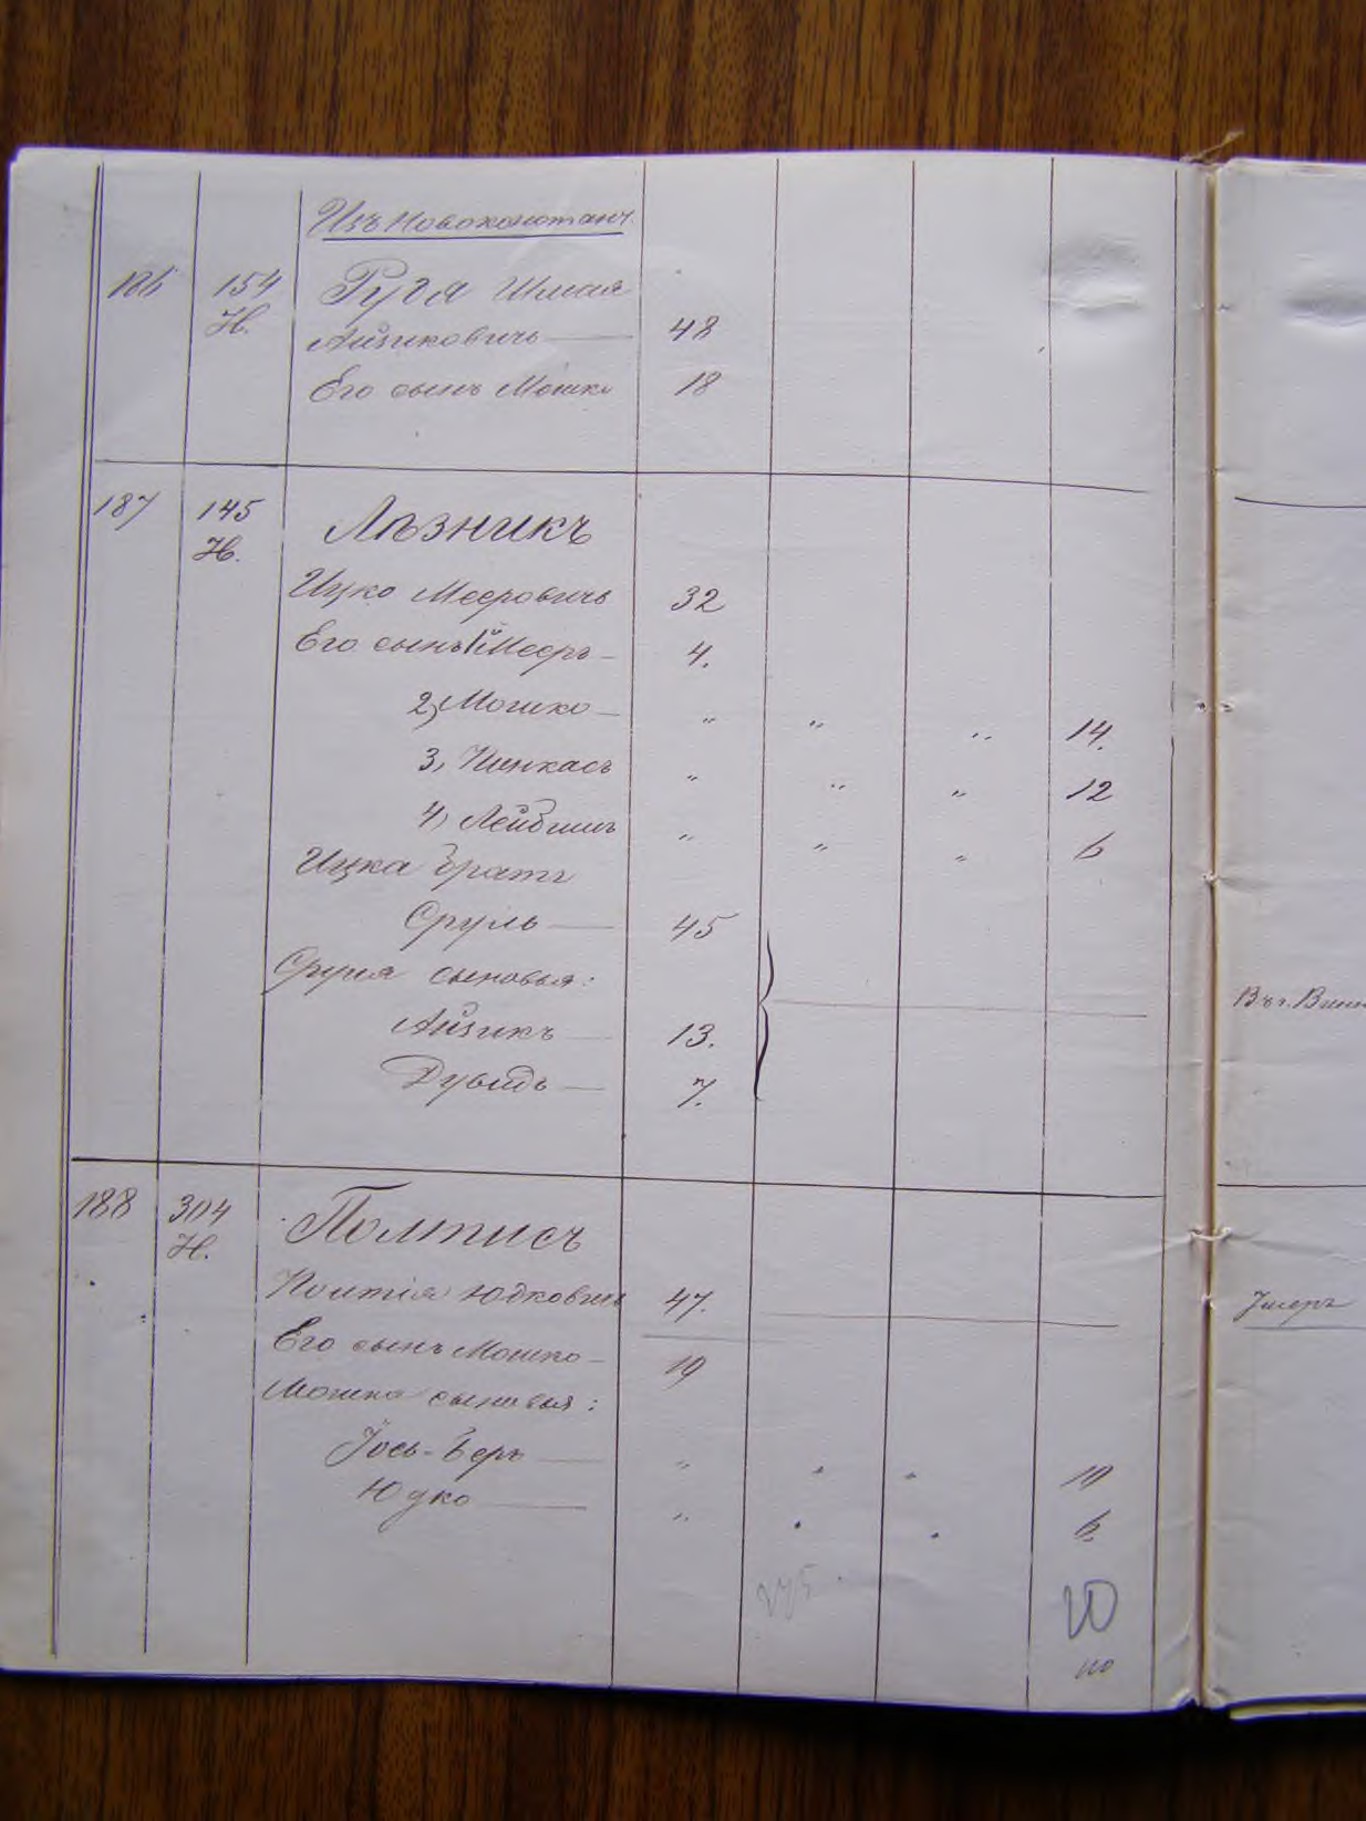 Изъ Новоконстант.
186 154 Руга Шмая
Н. Айзиковичъ — 48
Его сынъ Мошко 18
187 145 Лазникъ
Н.
Ицко Мееровичъ 32
Его сынъ 1й Мееръ — 4.
2, Мошко — " " " 14.
3, Пинкасъ " " " 12
4, Лейбишъ " " " 6
Ицка братъ
Сруль — 45
Сруля сыновья:
Айзикъ — 13.
Дувидъ — 7.
Въ г. Винн
188 304 Полтисъ
Н.
Юдковичъ 47.
Умеръ
Его сынъ Мошко — 19
Мошка сыновья:
Йось-Беръ — " " " 10
Юдко — " " " 6
275
20